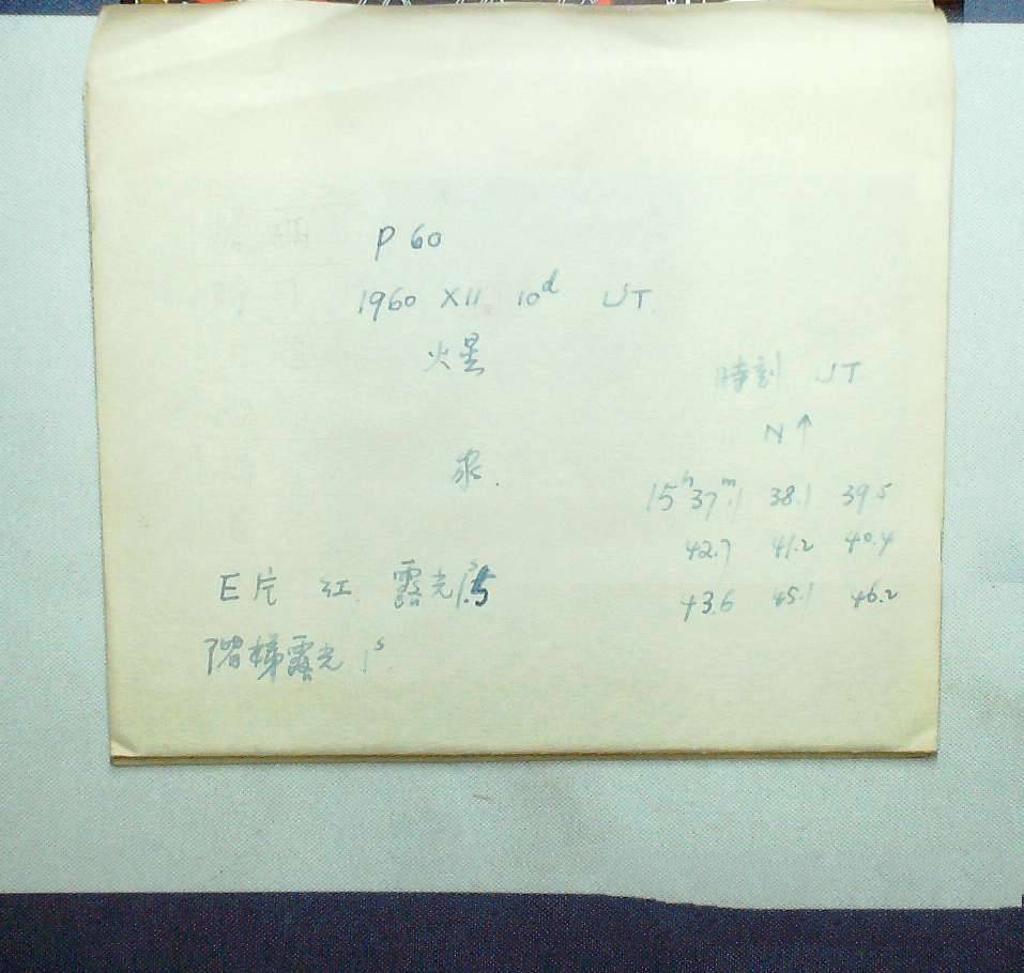 P 60
1960 XII 10d UT
火星
時刻 UT
N↑
15h37m.1 38.1 39.5
42.7 41.2 40.4
43.6 45.1 46.2
E片 紅 露光 1s.5
階梯露光 1s